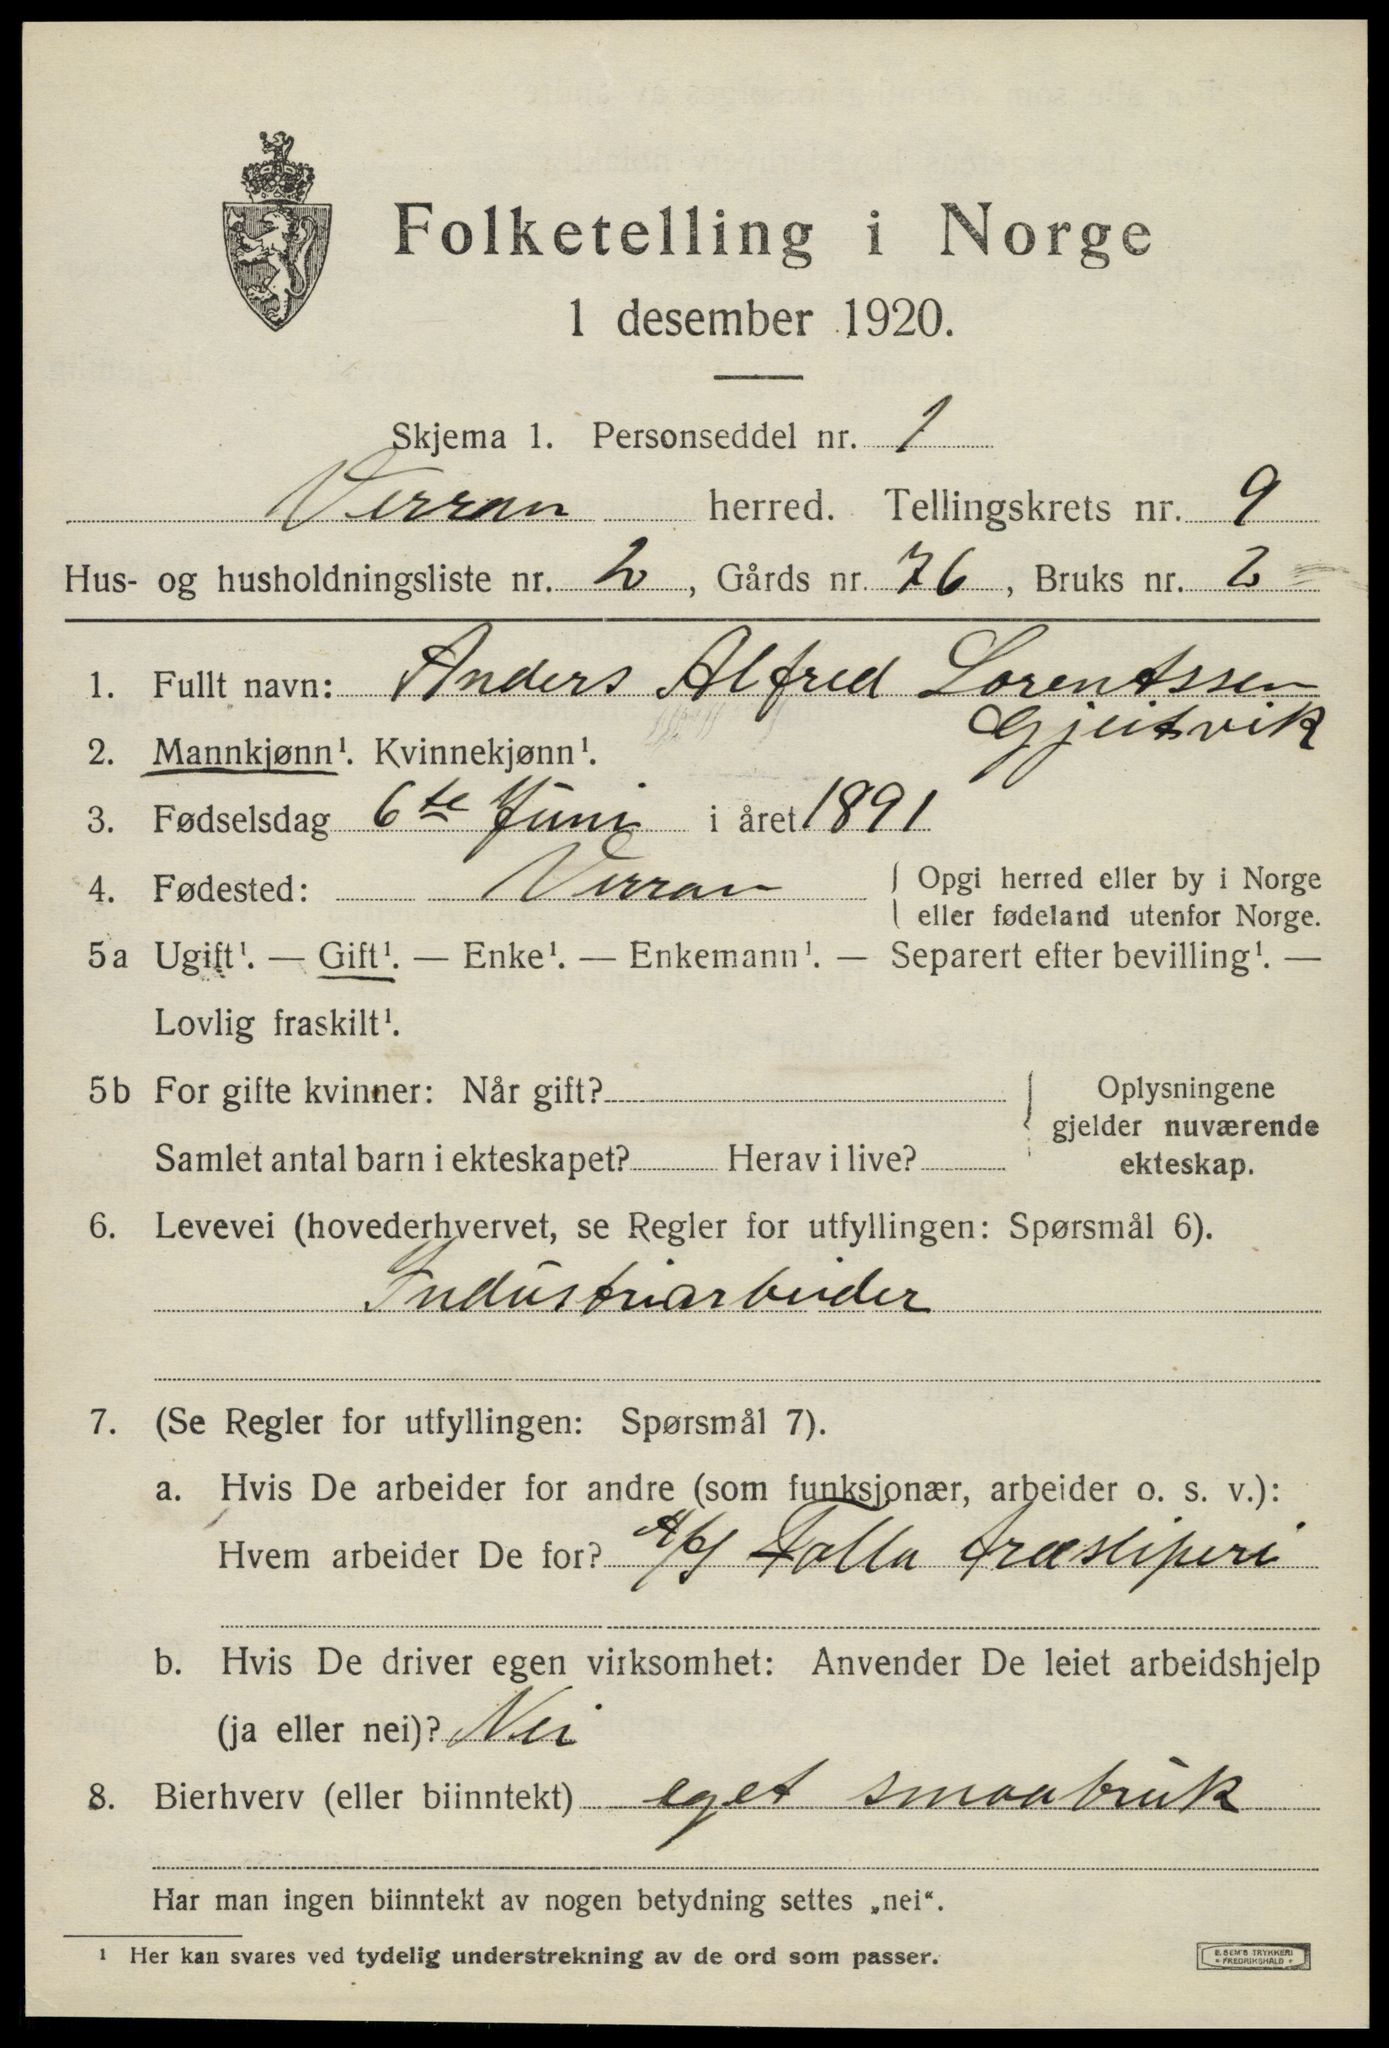 Folketelling i Norge
1 desember 1920.
Skjema 1. Personseddel nr. 1
Verran herred. Tellingskrets nr. 9
Hus- og husholdningsliste nr. 2, Gårds nr. 76, Bruks nr. 2
1. Fullt navn: Anders Alfred Lorentssen
Gjeitsvik
2. Mannkjønn¹. Kvinnekjønn¹.
3. Fødselsdag 6te Juni i året 1891
4. Fødested: Verran { Opgi herred eller by i Norge
eller fødeland utenfor Norge.
5a Ugift¹. — Gift¹. — Enke¹. — Enkemann¹. — Separert efter bevilling¹. —
Lovlig fraskilt¹.
5b For gifte kvinner: Når gift? { Oplysningene
gjelder nuværende
Samlet antal barn i ekteskapet? Herav i live? ekteskap.
6. Levevei (hovederhvervet, se Regler for utfyllingen: Spørsmål 6).
Industriarbeider
7. (Se Regler for utfyllingen: Spørsmål 7).
a. Hvis De arbeider for andre (som funksjonær, arbeider o. s. v.):
Hvem arbeider De for? A/S Folla træsliperi
b. Hvis De driver egen virksomhet: Anvender De leiet arbeidshjelp
(ja eller nei)? Nei
8. Bierhverv (eller biinntekt) eget smaabruk
Har man ingen biinntekt av nogen betydning settes „nei“.
¹ Her kan svares ved tydelig understrekning av de ord som passer.
E. SEM'S TRYKKERI
• FREDRIKSHALD •